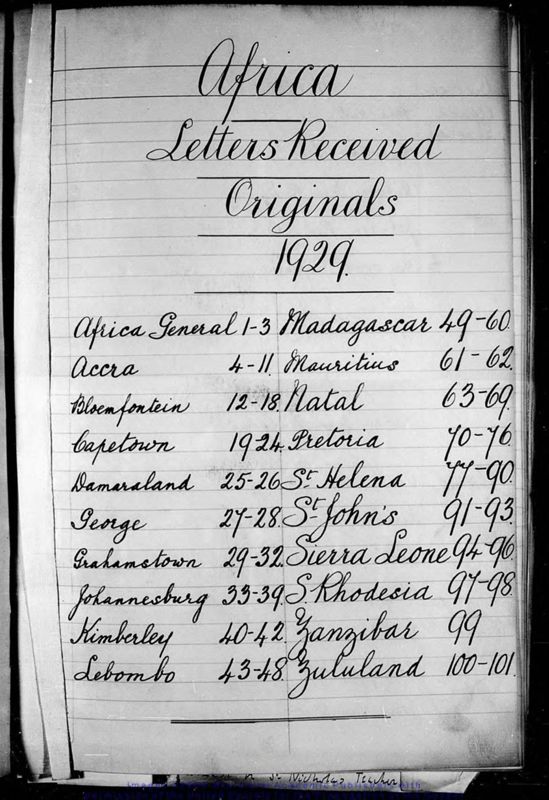 Africa
Letters Received
Originals
1929.
Africa General 1-3 Madagascar 49-60.
Accra 4-11. Mauritius 61-62.
Bloemfontein 12-18. Natal 63-69.
Capetown 19-24. Pretoria 70-76
Damaraland 25-26 St. Helena 77-90
George 27-28. St. John's 91-93.
Grahamstown 29-32. Sierra Leone 94-96
Johannesburg 33-39. S. Rhodesia 97-98
Kimberley 40-42. Zanzibar 99
Lebombo 43-48. Zululand 100-101.
St Nicholas, Teacher